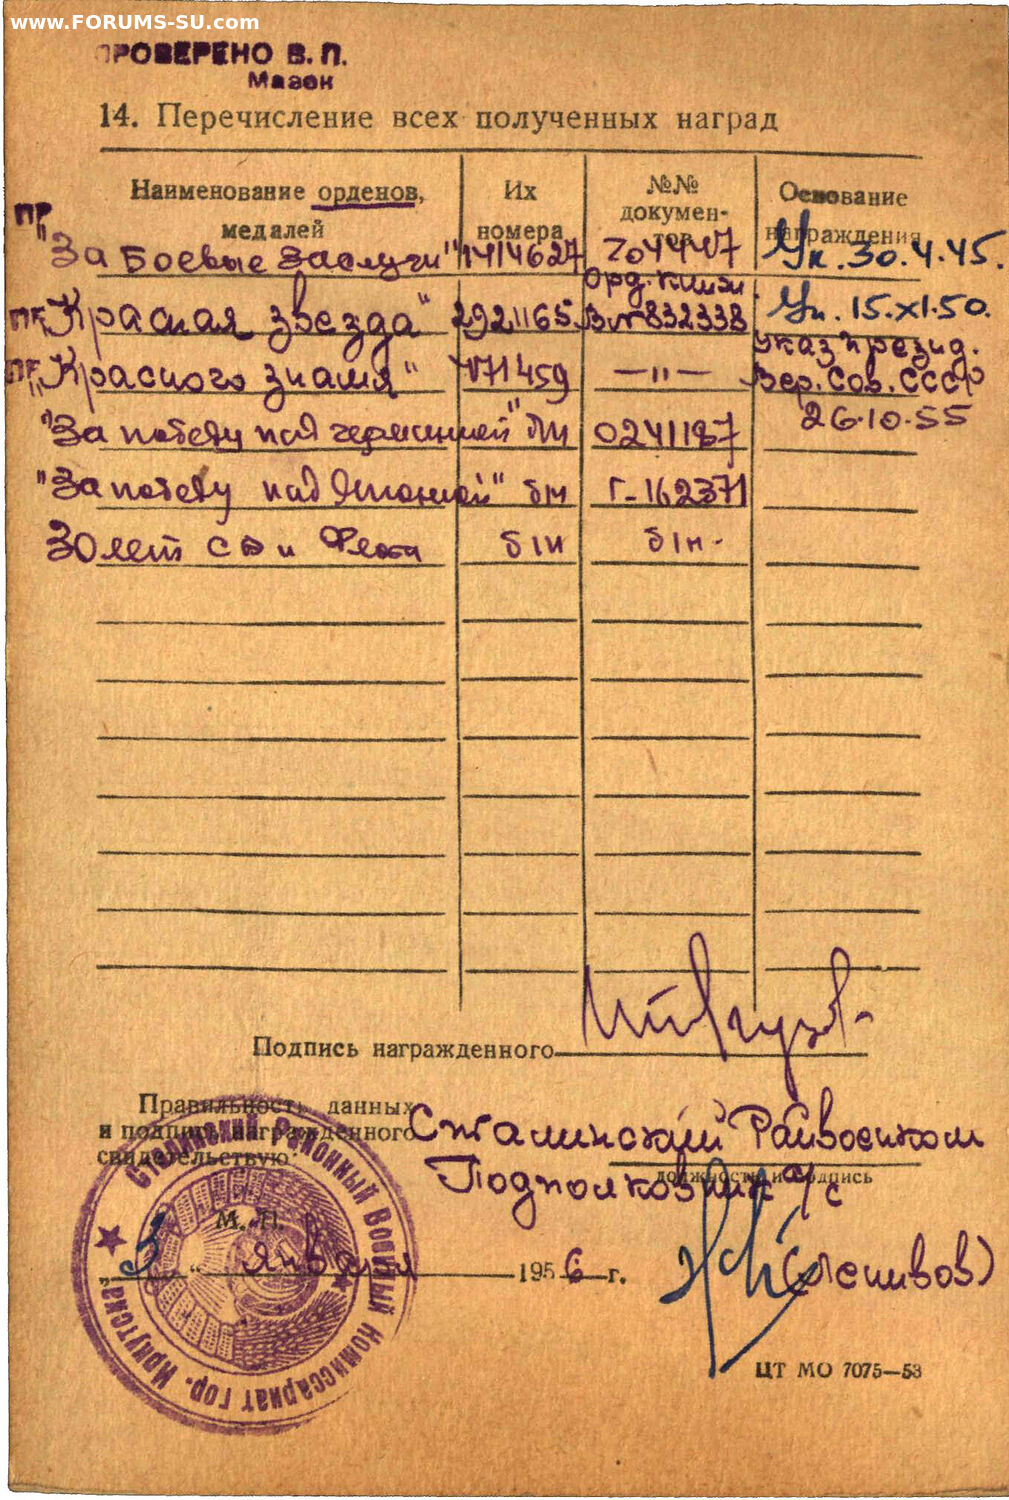 www.FORUMS-SU.com
ПРОВЕРЕНО В. П.
Мазок
14. Перечисление всех полученных наград
Наименование орденов, медалей
Их номера
№№ докумен-тов
Основание награждения
ПР "За Боевые заслуги" 1414627 Ук. 30.4.45.
Орд. книж
ПР „Красная звезда" 2921165 В№832338 Ук. 15.XI.50.
Указ През ид.
ПР „Красного знамя" 471459 —„— Вер. Сов. СССР
26.10.55
"За победу над германией" 0241187
"За победу над Японией" б/н Г-162371
30 лет СА и Флота б/н б/н.
Подпись награжденного
Правильность данных
и подпись награжденного
свидетельствую:
Сталинский Райвоенком
Подполковник а/с
должность и подпись
М. П.
3 „ января 1956 г.
Сталинский Районный Военный Комиссариат гор. Иркутска
ЦТ МО 7075—53